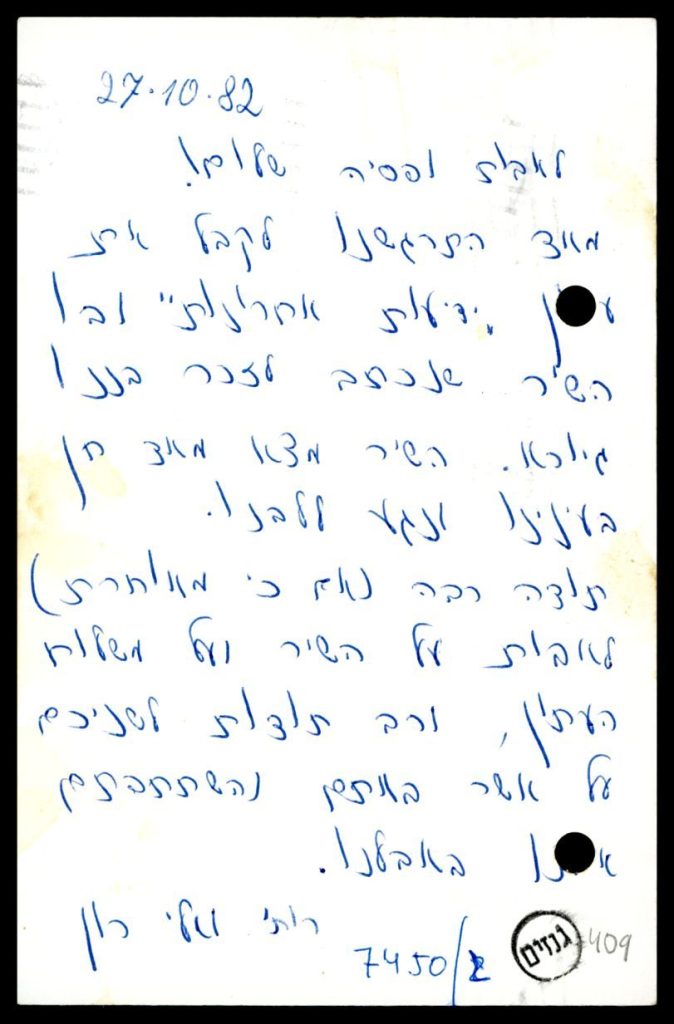 27.10.82
לאבות ופסיה שלום!
מאד התרגשנו לקבל את
"ידיעות אחרונות" ובו
השיר שנכתב לזכר בננו
גיורא. השיר מצא מאד חן
בעינינו ונגע ללבנו.
תודה רבה (אף כי מאוחרת)
לאבות על השיר ועל משלוח
העתון, ורב תודות לשניכם
על אשר באתם והשתתפתם
באבלנו.
רותי ואלי רון
7450/2
גנזים
409